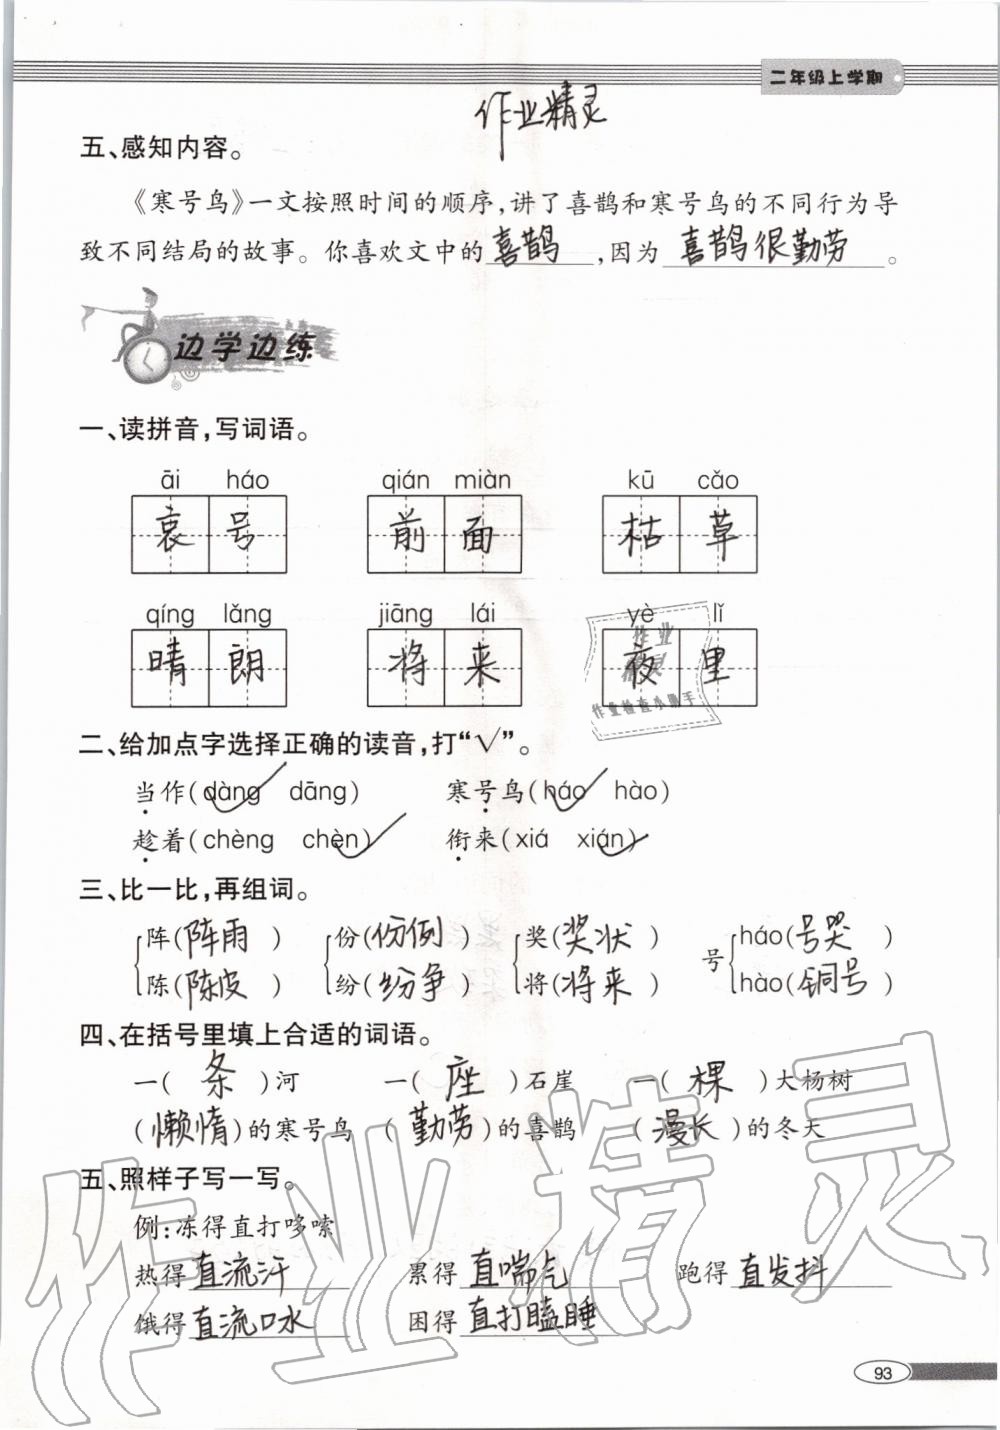 二年级上学期
作业精灵
五、感知内容。
《寒号鸟》一文按照时间的顺序,讲了喜鹊和寒号鸟的不同行为导
致不同结局的故事。你喜欢文中的 喜鹊 ,因为 喜鹊很勤劳 。
边学边练
一、读拼音,写词语。
āi háo qián miàn kū cǎo
哀号 前面 枯草
qíng lǎng jiāng lái yè lǐ
晴朗 将来 夜里
作业精灵
作业检查小助手
二、给加点字选择正确的读音,打“√”。
当作(dàng✓ dāng) 寒号鸟(háo✓ hào)
趁着(chèng chèn✓) 衔来(xiá xián✓)
三、比一比,再组词。
阵(阵雨) 份(份例) 奖(奖状) 号 háo(号哭)
陈(陈皮) 纷(纷争) 将(将来) hào(铜号)
四、在括号里填上合适的词语。
一(条)河 一(座)石崖 一(棵)大杨树
(懒惰)的寒号鸟 (勤劳)的喜鹊 (漫长)的冬天
五、照样子写一写。
例:冻得直打哆嗦
热得 直流汗 累得 直喘气 跑得 直发抖
饿得 直流口水 困得 直打瞌睡
作业精灵
93